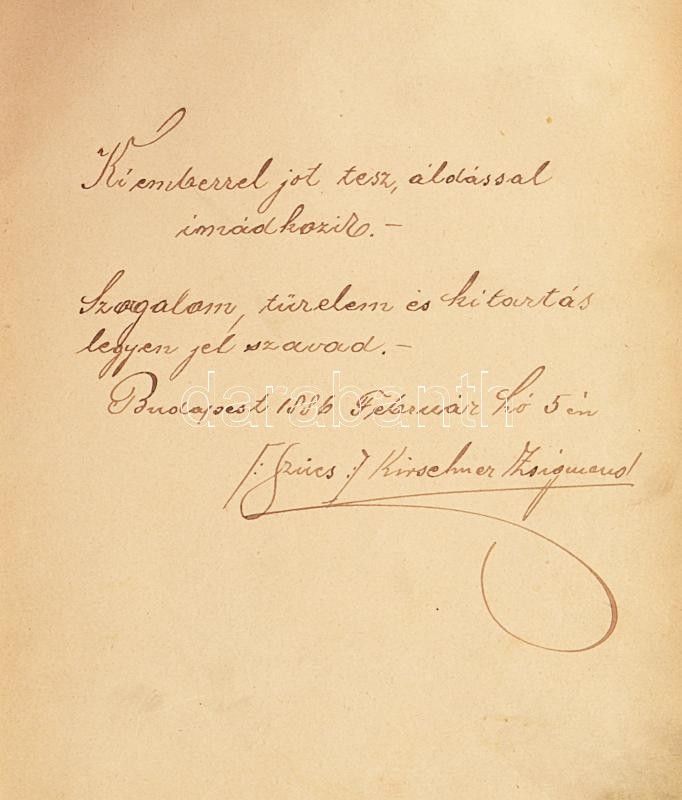 Ki emberrel jót tesz, áldással
imádkozik.–
Szorgalom, türelem és kitartás
legyen jel szavad.–
Budapest 1886 Február hó 5 én
/: Szücs :/ Kirschner Zsigmond
darabanth